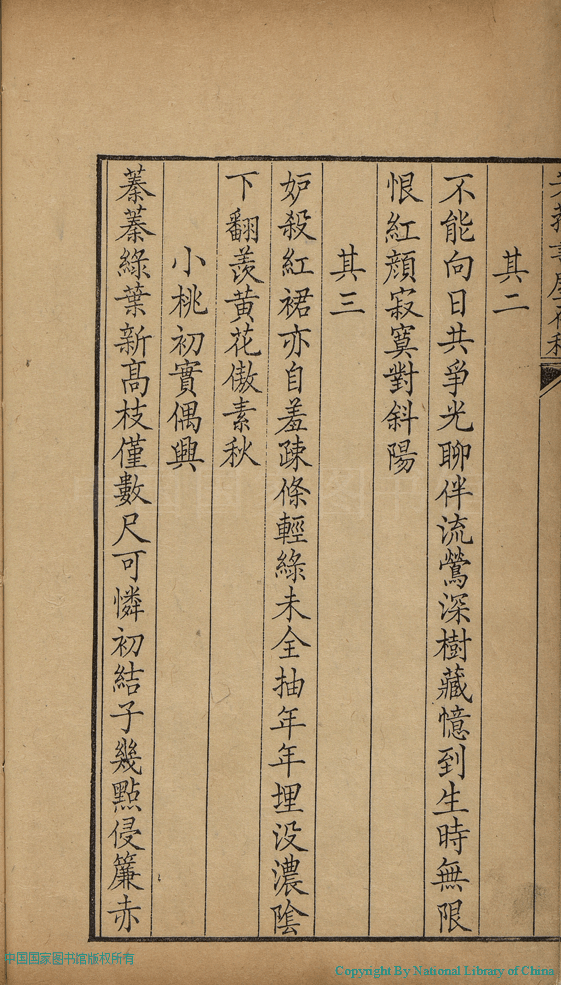 其二
不能向日共爭光聊伴流鶯深樹藏憶到生時無限
恨紅顔寂寞對斜陽
其三
妒殺紅裙亦自羞疎條輕綠未全抽年年埋没濃陰
下翻羨黃花傲素秋
小桃初實偶興
蓁蓁綠葉新高枝僅數尺可憐初結子幾點侵簾赤
中国国家图书馆
中国国家图书馆版权所有
Copyright By National Library of China